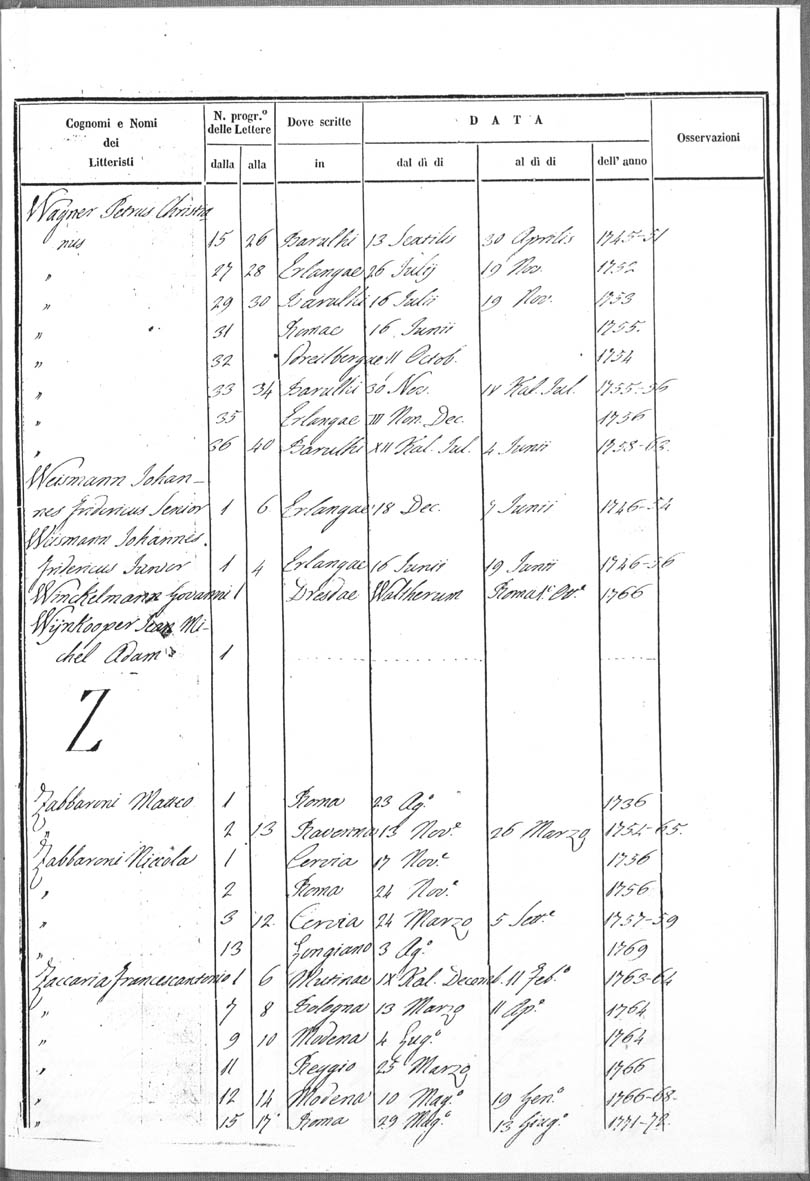 Cognomi e Nomi dei Litteristi
N. progr.º delle Lettere
Dove scritte
DATA
Osservazioni
dalla alla in dal dì di al dì di dell' anno
Wagner Petrus Christia
nus 15 26 Baruthi 13 Sextilis 30 Aprilis 1745-51
" 27 28 Erlangae 26 Julij 19 Nov. 1752
" 29 30 Baruthi 16 Julii 19 Nov. 1753
" 31 Romae 16 Junii 1755.
" 32 11 Octob. 1754
" 33 34 Baruthi 30 Nov. IV Kal. Jul. 1755-56
" 35 Erlangae III Non. Dec. 1756
" 36 40 Baruthi XII Kal. Jul. 4 Junii 1758-63.
Weismann Johan-
nes Fridericus Senior 1 6 Erlangae 18 Dec. 7 Junii 1746-54
Weismann Johannes
Fridericus Junior 1 4 Erlangae 16 Junii 19 Junii 1746-56
Winckelmann Govanni 1 Dresdae Waltherum 1766
Wijnkooper Jean Mi-
chel Adam 1
Z
Zabbaroni Matteo 1 Roma 23 Ag.º 1736
" 2 13 Ravenna 13 Nov.e 26 Marzo 1754-65.
Zabbaroni Niccola 1 Cervia 17 Nov.e 1756
" 2 Roma 24 Nov.e 1756
" 3 12 Cervia 24 Marzo 5 Sett.e 1757-59
" 13 Longiano 3 Ag.º 1769
Zaccaria Francescantonio 1 6 Mutinae IX Kal. Decemb. 11 Feb.º 1763-64
" 7 8 Bologna 13 Marzo 11 Ap.e 1764
" 9 10 Modena 4 Giug.º 1764
" 11 Reggio 25 Marzo 1766
" 12 14 Modena 10 Mag.º 19 Gen.º 1766-68.
" 15 17 Roma 29 Mag.º 13 Giug.º 1771-72.